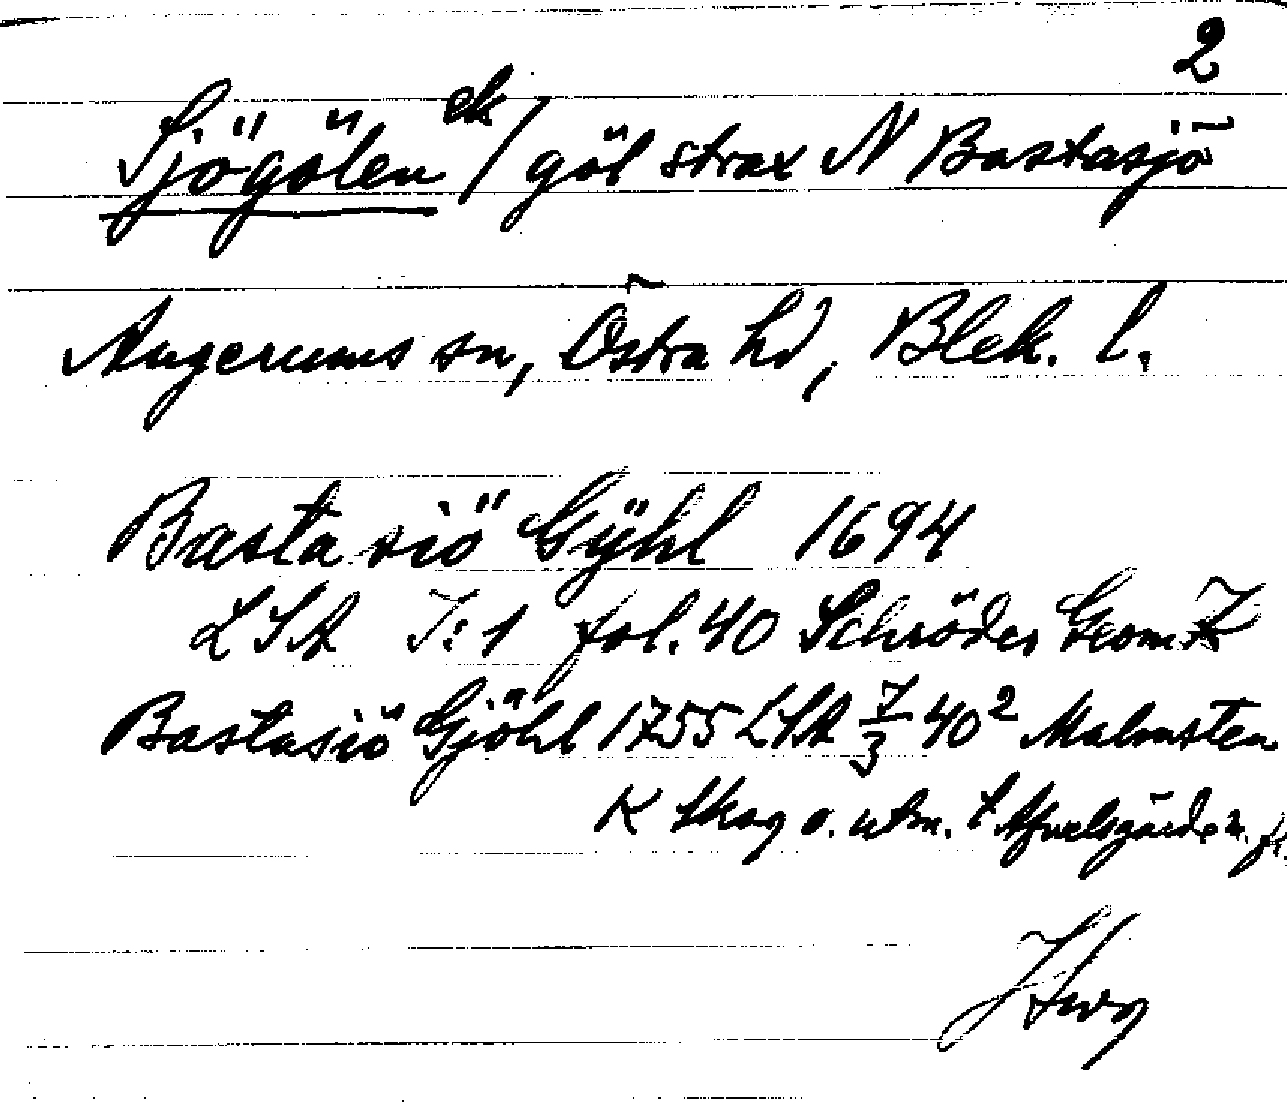 2
Sjögölen ek / göl strax N Bastasjö
Augerums sn, Östra hd, Blek. l.
Basta siö Gÿhl 1694
LSA I:1 fol. 40 Schröder Geom
Bastasiö Gjöhl 1755 LSA 7/3 40² Malmsten
K Skog o. utm. t Afvelsgärde m. fl.